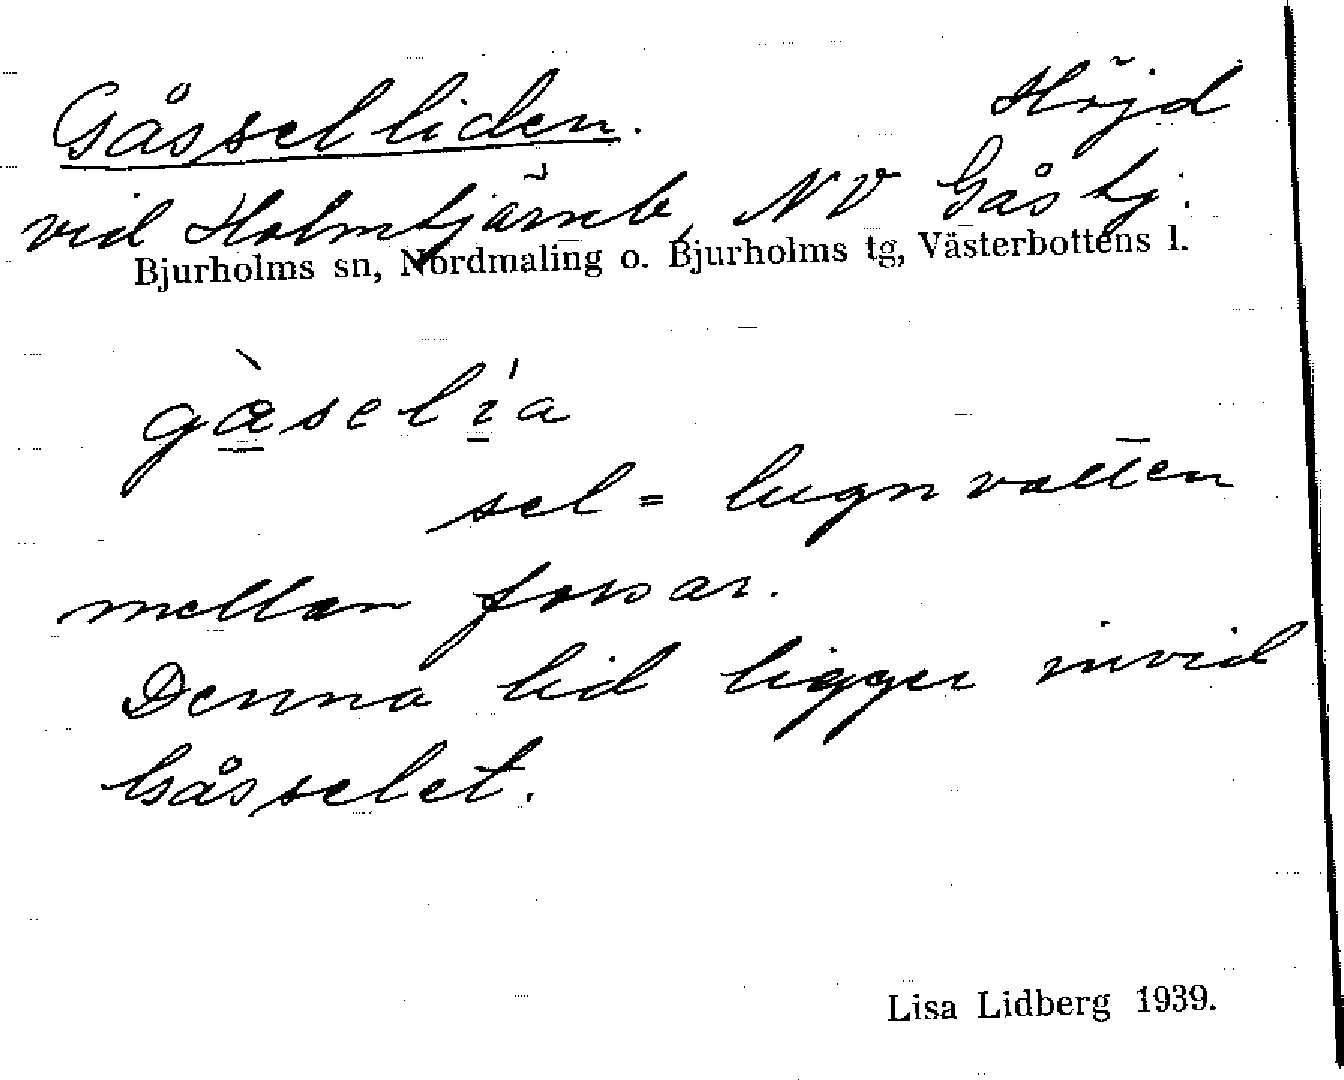 Gåsselliden. Höjd
vid Holmtjärnb, NV Gåstj.
Bjurholms sn, Nordmaling o. Bjurholms tg, Västerbottens l.
gæ̀selía
sel = lugnvatten
mellan forsar.
Denna lid ligger invid
Gåsselet.
Lisa Lidberg 1939.